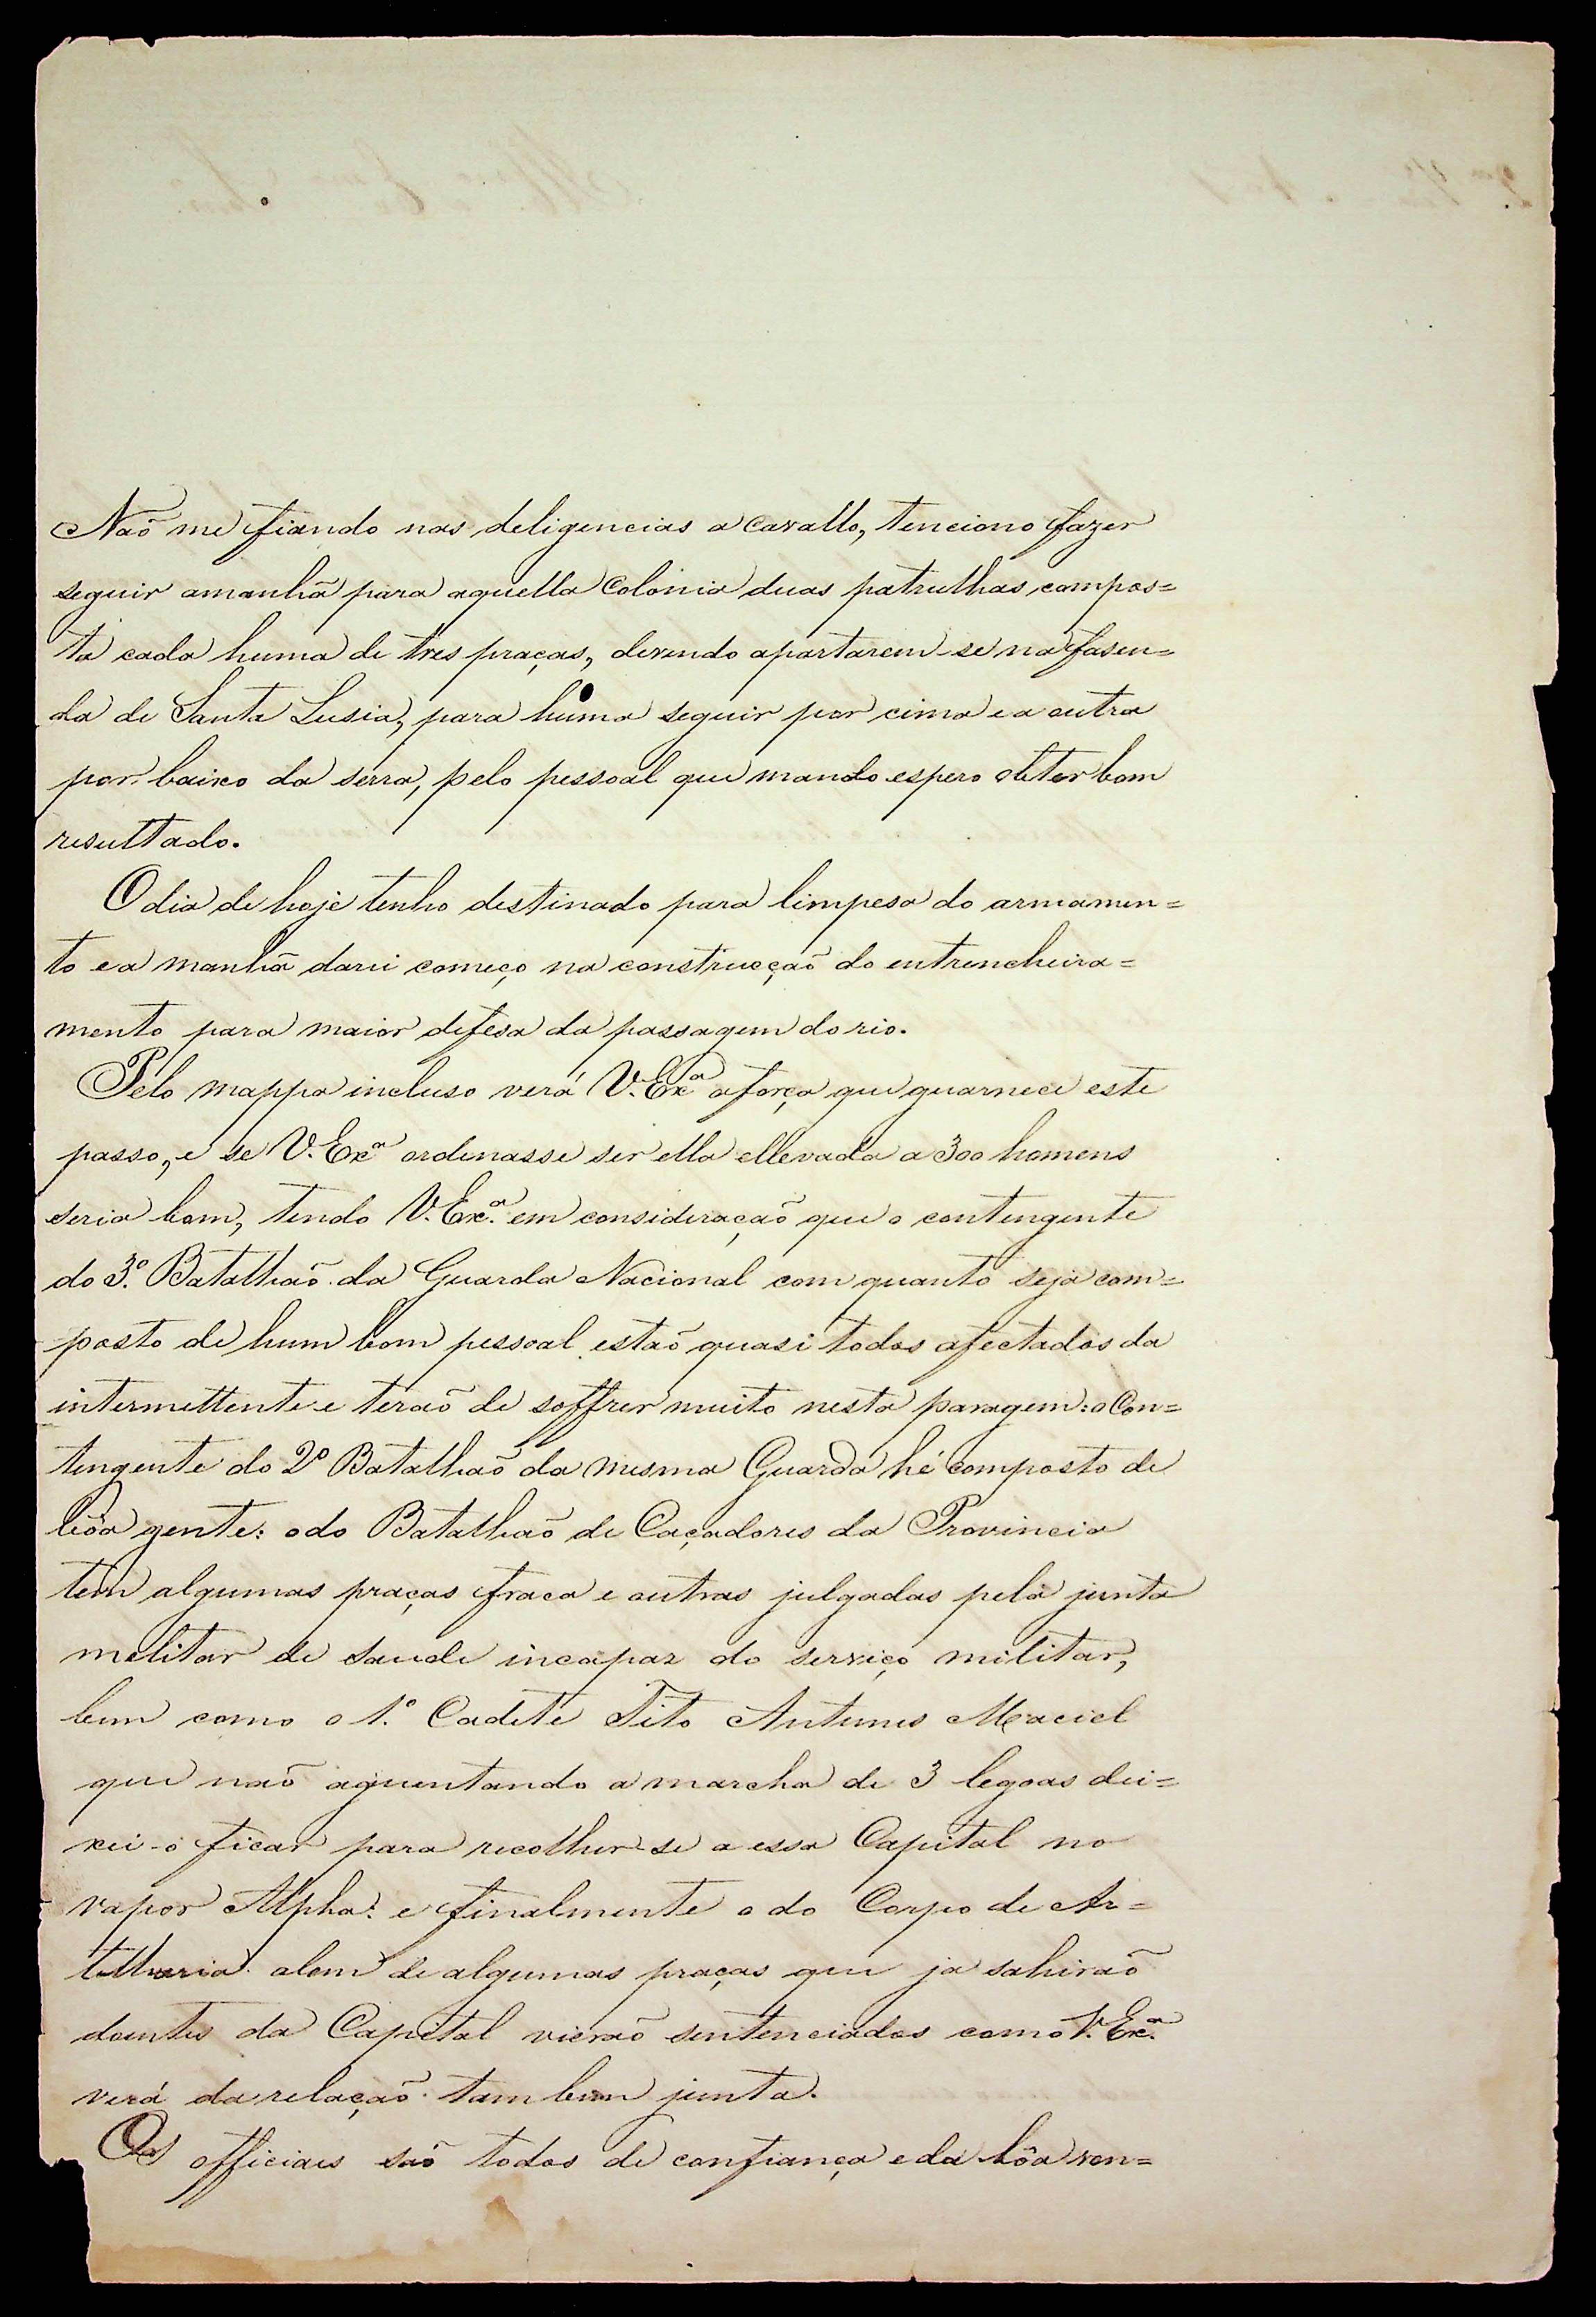 Naõ me fiando nas deligencias a Cavallo, tenciono fazer
seguir amanhã para aquella Colonia duas patrulhas, compos=
ta cada huma de tres praças, devendo apartarem-se na fasen=
da de Santa Lusia, para huma seguir por cima e a outra
por baixo da serra, pelo pessoal que mando espero obter bom
resultado.
O dia de hoje tenho destinado para limpesa do armamen=
to e a manhã darei começo na construcçaõ do entrencheira=
mento para maior defesa da passagem do rio.
Pelo mappa incluso verá V. Exª a força que guarnece este
passo, e se V. Exª ordenasse ser ella ellevada a 300 homens
seria bom, tendo V. Exª em consideraçaõ que o contengente
do 3º Batalhaõ da Guarda Nacional com quanto seja com=
posto de hum bom pessoal estaõ quasi todos afectados da
intermettente e teraõ de soffrer muito nesta paragem: o Con=
tengente do 2º Batalhaõ da mesma Guarda hé composto de
bôa gente: o do Batalhaõ de Caçadores da Provincia
tem algumas praças fraca e outras julgadas pela junta
militar de saude incapaz do serviço militar,
bem como o 1º Cadete Tito Antunes Maciel
que naõ aguentando a marcha de 3 legoas dei=
xei-o ficar para recolher-se a essa Capital no
vapor Alpha: e finalmente o do Corpo de Ar=
tilharia alem de algumas praças que ja sahiraõ
doentes da Capital vieraõ sentenciados como V. Exª
verá da relaçaõ tam bem junta.
Os officiaes saõ todos de confiança e da bôa von=